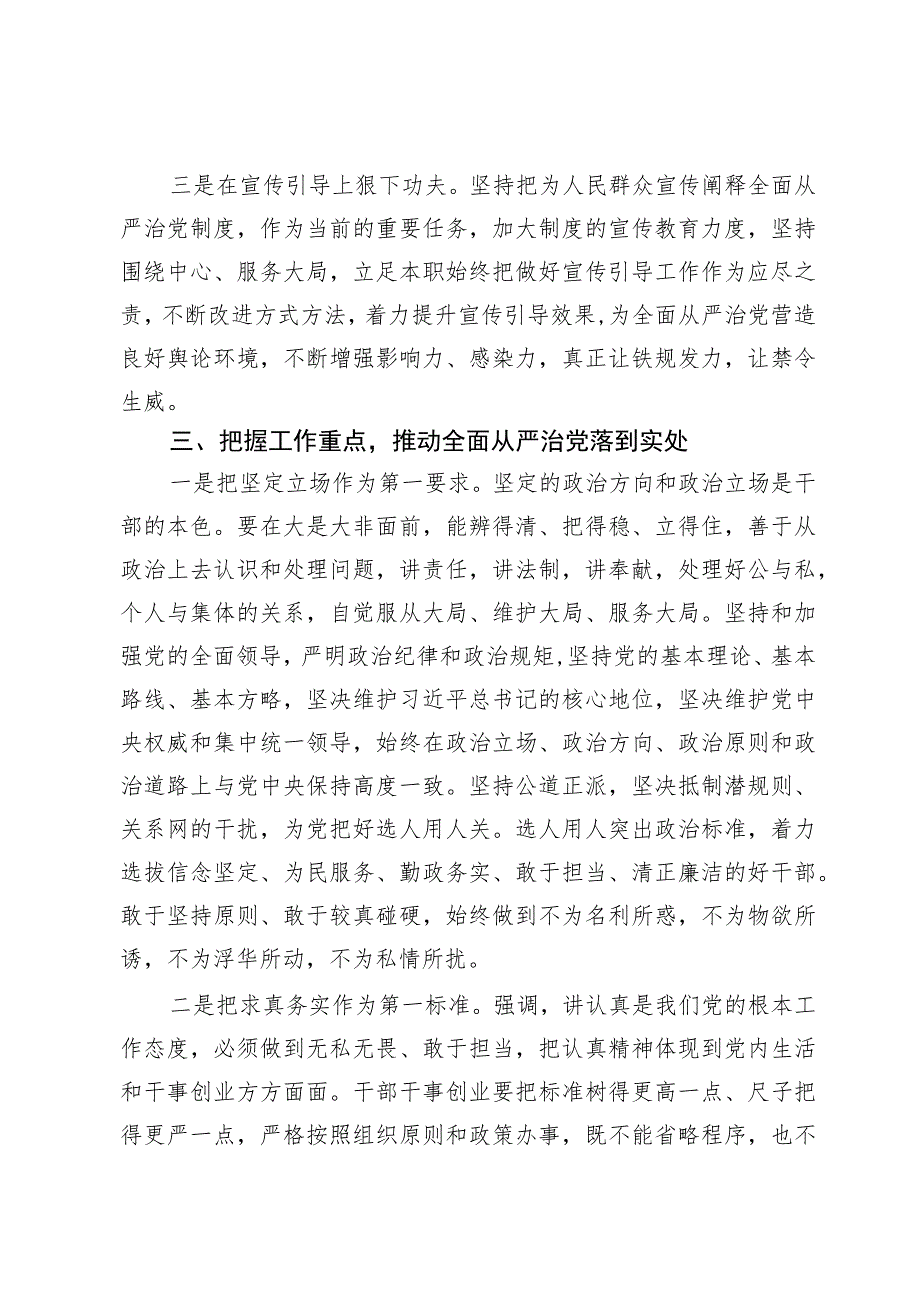 三是在宣传引导上狠下功夫。坚持把为人民群众宣传阐释全面从
严治党制度，作为当前的重要任务，加大制度的宣传教育力度，坚持
围绕中心、服务大局，立足本职始终把做好宣传引导工作作为应尽之
责，不断改进方式方法，着力提升宣传引导效果,为全面从严治党营造
良好舆论环境，不断增强影响力、感染力，真正让铁规发力，让禁令
生威。
三、把握工作重点，推动全面从严治党落到实处
一是把坚定立场作为第一要求。坚定的政治方向和政治立场是干
部的本色。要在大是大非面前，能辨得清、把得稳、立得住，善于从
政治上去认识和处理问题，讲责任，讲法制，讲奉献，处理好公与私，
个人与集体的关系，自觉服从大局、维护大局、服务大局。坚持和加
强党的全面领导，严明政治纪律和政治规矩,坚持党的基本理论、基本
路线、基本方略，坚决维护习近平总书记的核心地位，坚决维护党中
央权威和集中统一领导，始终在政治立场、政治方向、政治原则和政
治道路上与党中央保持高度一致。坚持公道正派，坚决抵制潜规则、
关系网的干扰，为党把好选人用人关。选人用人突出政治标准，着力
选拔信念坚定、为民服务、勤政务实、敢于担当、清正廉洁的好干部。
敢于坚持原则、敢于较真碰硬，始终做到不为名利所惑，不为物欲所
诱，不为浮华所动，不为私情所扰。
二是把求真务实作为第一标准。强调，讲认真是我们党的根本工
作态度，必须做到无私无畏、敢于担当，把认真精神体现到党内生活
和干事创业方方面面。干部干事创业要把标准树得更高一点、尺子把
得更严一点，严格按照组织原则和政策办事，既不能省略程序，也不